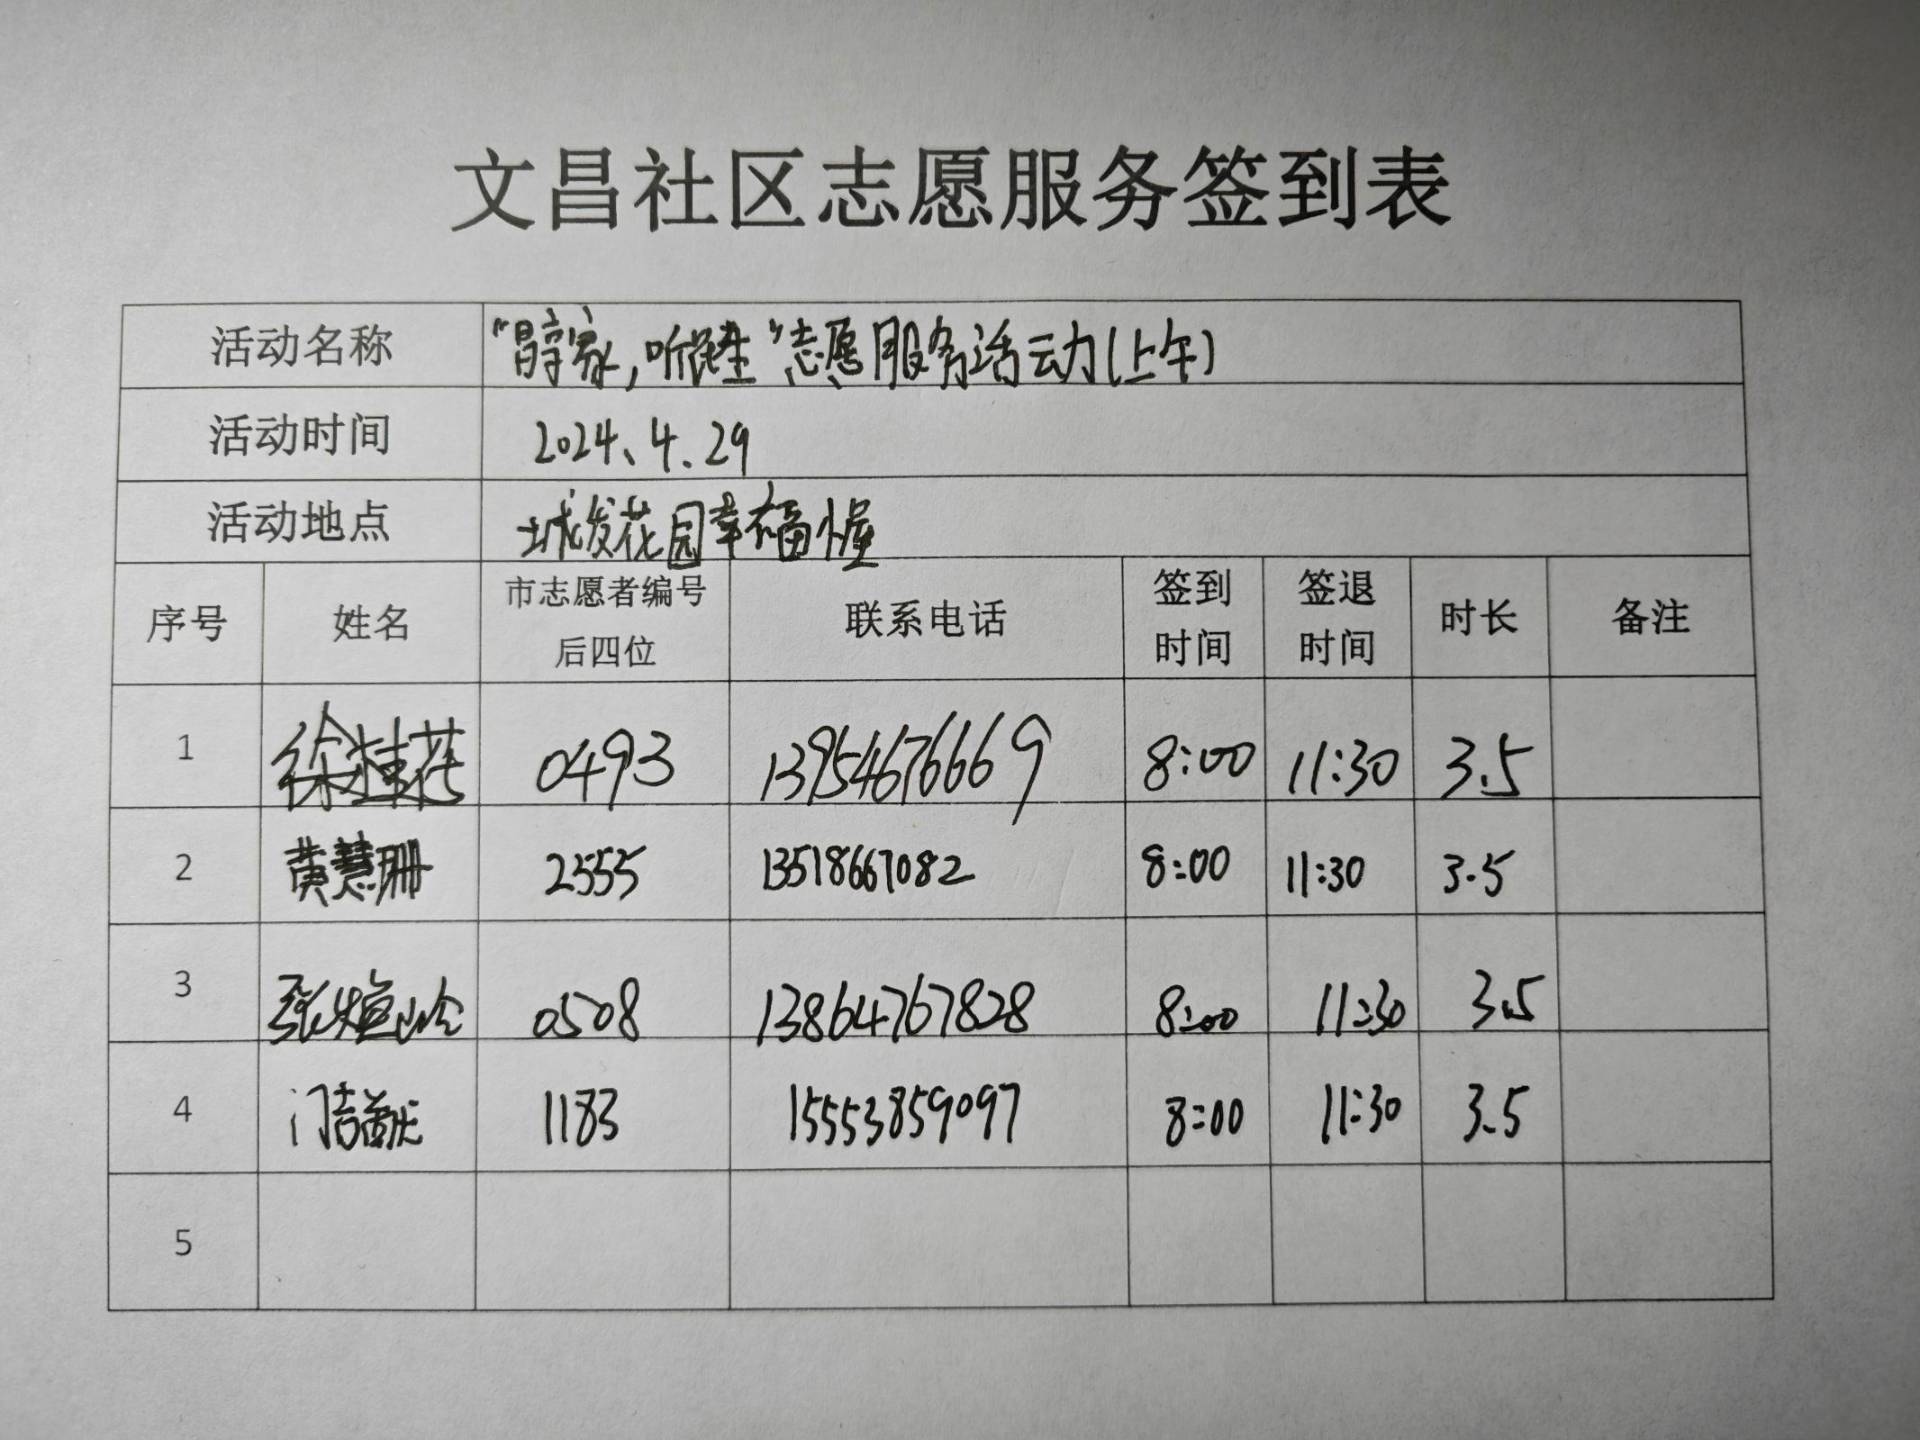 文昌社区志愿服务签到表
活动名称 志愿服务活动(上午)
活动时间 2024、4.29
活动地点 城发花园幸福小屋
序号 姓名 市志愿者编号后四位 联系电话 签到时间 签退时间 时长 备注
1 徐桂花 0493 13954676669 8:00 11:30 3.5
2 黄慧珊 2555 13518667082 8:00 11:30 3.5
3 0508 13864767828 8:00 11:30 3.5
4 1183 15553859097 8:00 11:30 3.5
5